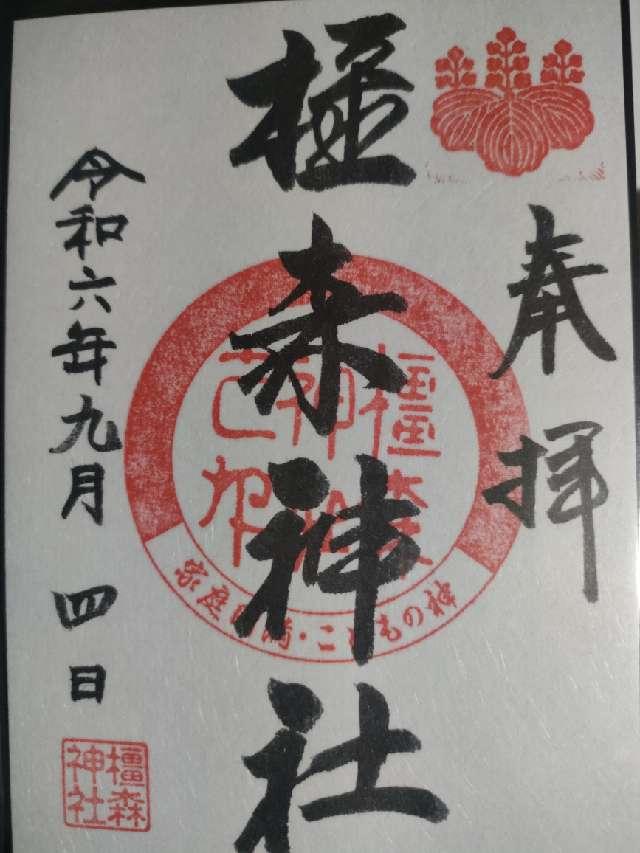 奉拝
橿森神社
家庭円満・こどもの神
令和六年九月 四日
橿森
神社